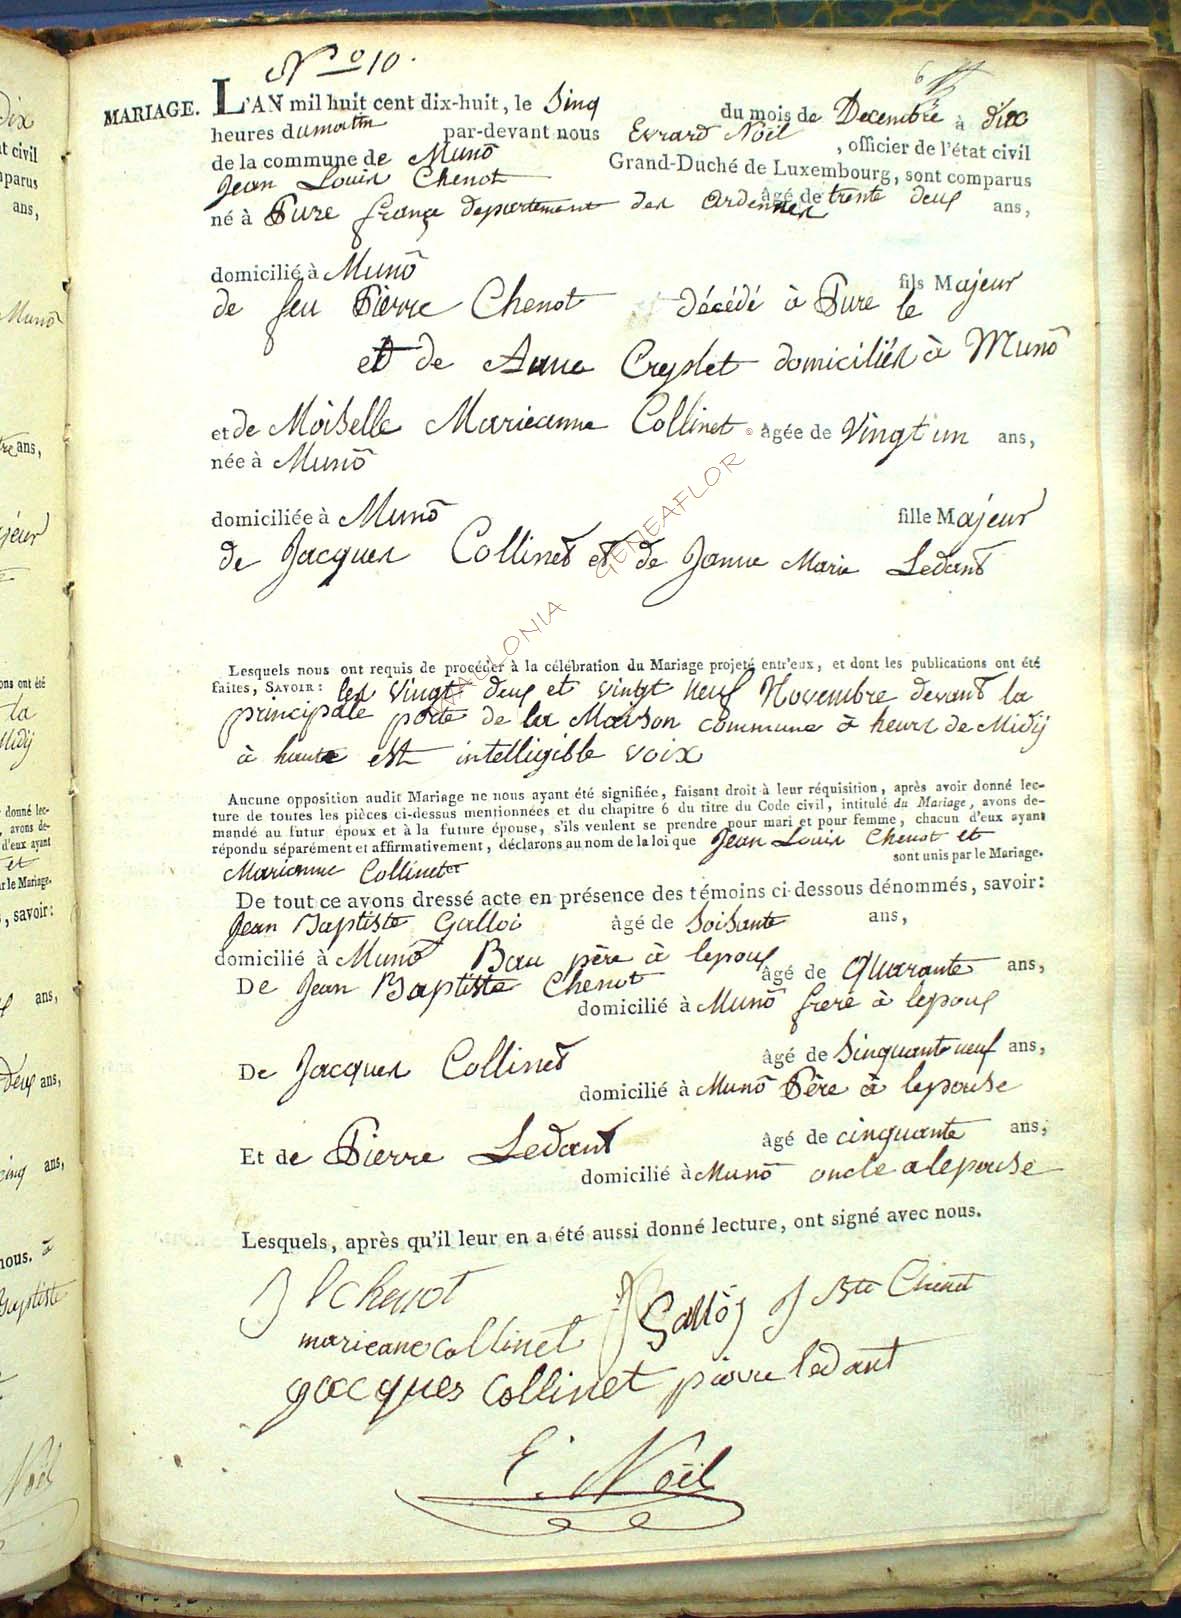 Nº 10.
MARIAGE. L'AN mil huit cent dix-huit, le Sinq du mois de Decembre à dix
heures du matin par-devant nous Evrard Noël, officier de l'état civil
de la commune de Munô Grand-Duché de Luxembourg, sont comparus
Jean Louis Chenot âgé de trente deux ans,
né à Pure françe departement des Ardennes
domicilié à Munô fils Majeur
de feu Pierre Chenot décédé à Pure le
et de Anne Creplet domiciliés à Munô
et de Moiselle Marieanne Collinet âgée de Vingt un ans,
née à Munô
domiciliée à Munô fille Majeur
de Jacques Collinet et de Janne Marie Ledant
Lesquels nous ont requis de procéder à la célébration du Mariage projeté entr'eux, et dont les publications ont été
faites, SAVOIR : les Vingt deux et vingt neuf Novembre devant la
principale porte de la Maison commune à heure de Midij
à haute est intelligible voix
Aucune opposition audit Mariage ne nous ayant été signifiée, faisant droit à leur réquisition, après avoir donné lec-
ture de toutes les pièces ci-dessus mentionnées et du chapitre 6 du titre du Code civil, intitulé du Mariage, avons de-
mandé au futur époux et à la future épouse, s'ils veulent se prendre pour mari et pour femme, chacun d'eux ayant
répondu séparément et affirmativement, déclarons au nom de la loi que Jean Louis Chenot et
Marianne Collinet sont unis par le Mariage.
De tout ce avons dressé acte en présence des témoins ci-dessous dénommés, savoir :
Jean Baptiste Galloi âgé de Soisante ans,
domicilié à Munô Bau père à lepoux
De Jean Baptiste Chenot âgé de Quarante ans,
domicilié à Munô frere à lepoux
De Jacques Collinet âgé de Sinquante neuf ans,
domicilié à Munô Père à lepouse
Et de Pierre Ledant âgé de cinquante ans,
domicilié à Munô oncle a lepouse
Lesquels, après qu'il leur en a été aussi donné lecture, ont signé avec nous.
J l chenot
marieane collinet Galloj J Bte Chenot
jacques collinet pierre ledant
E. Noël
WAULONIA GENEAFLOR ©